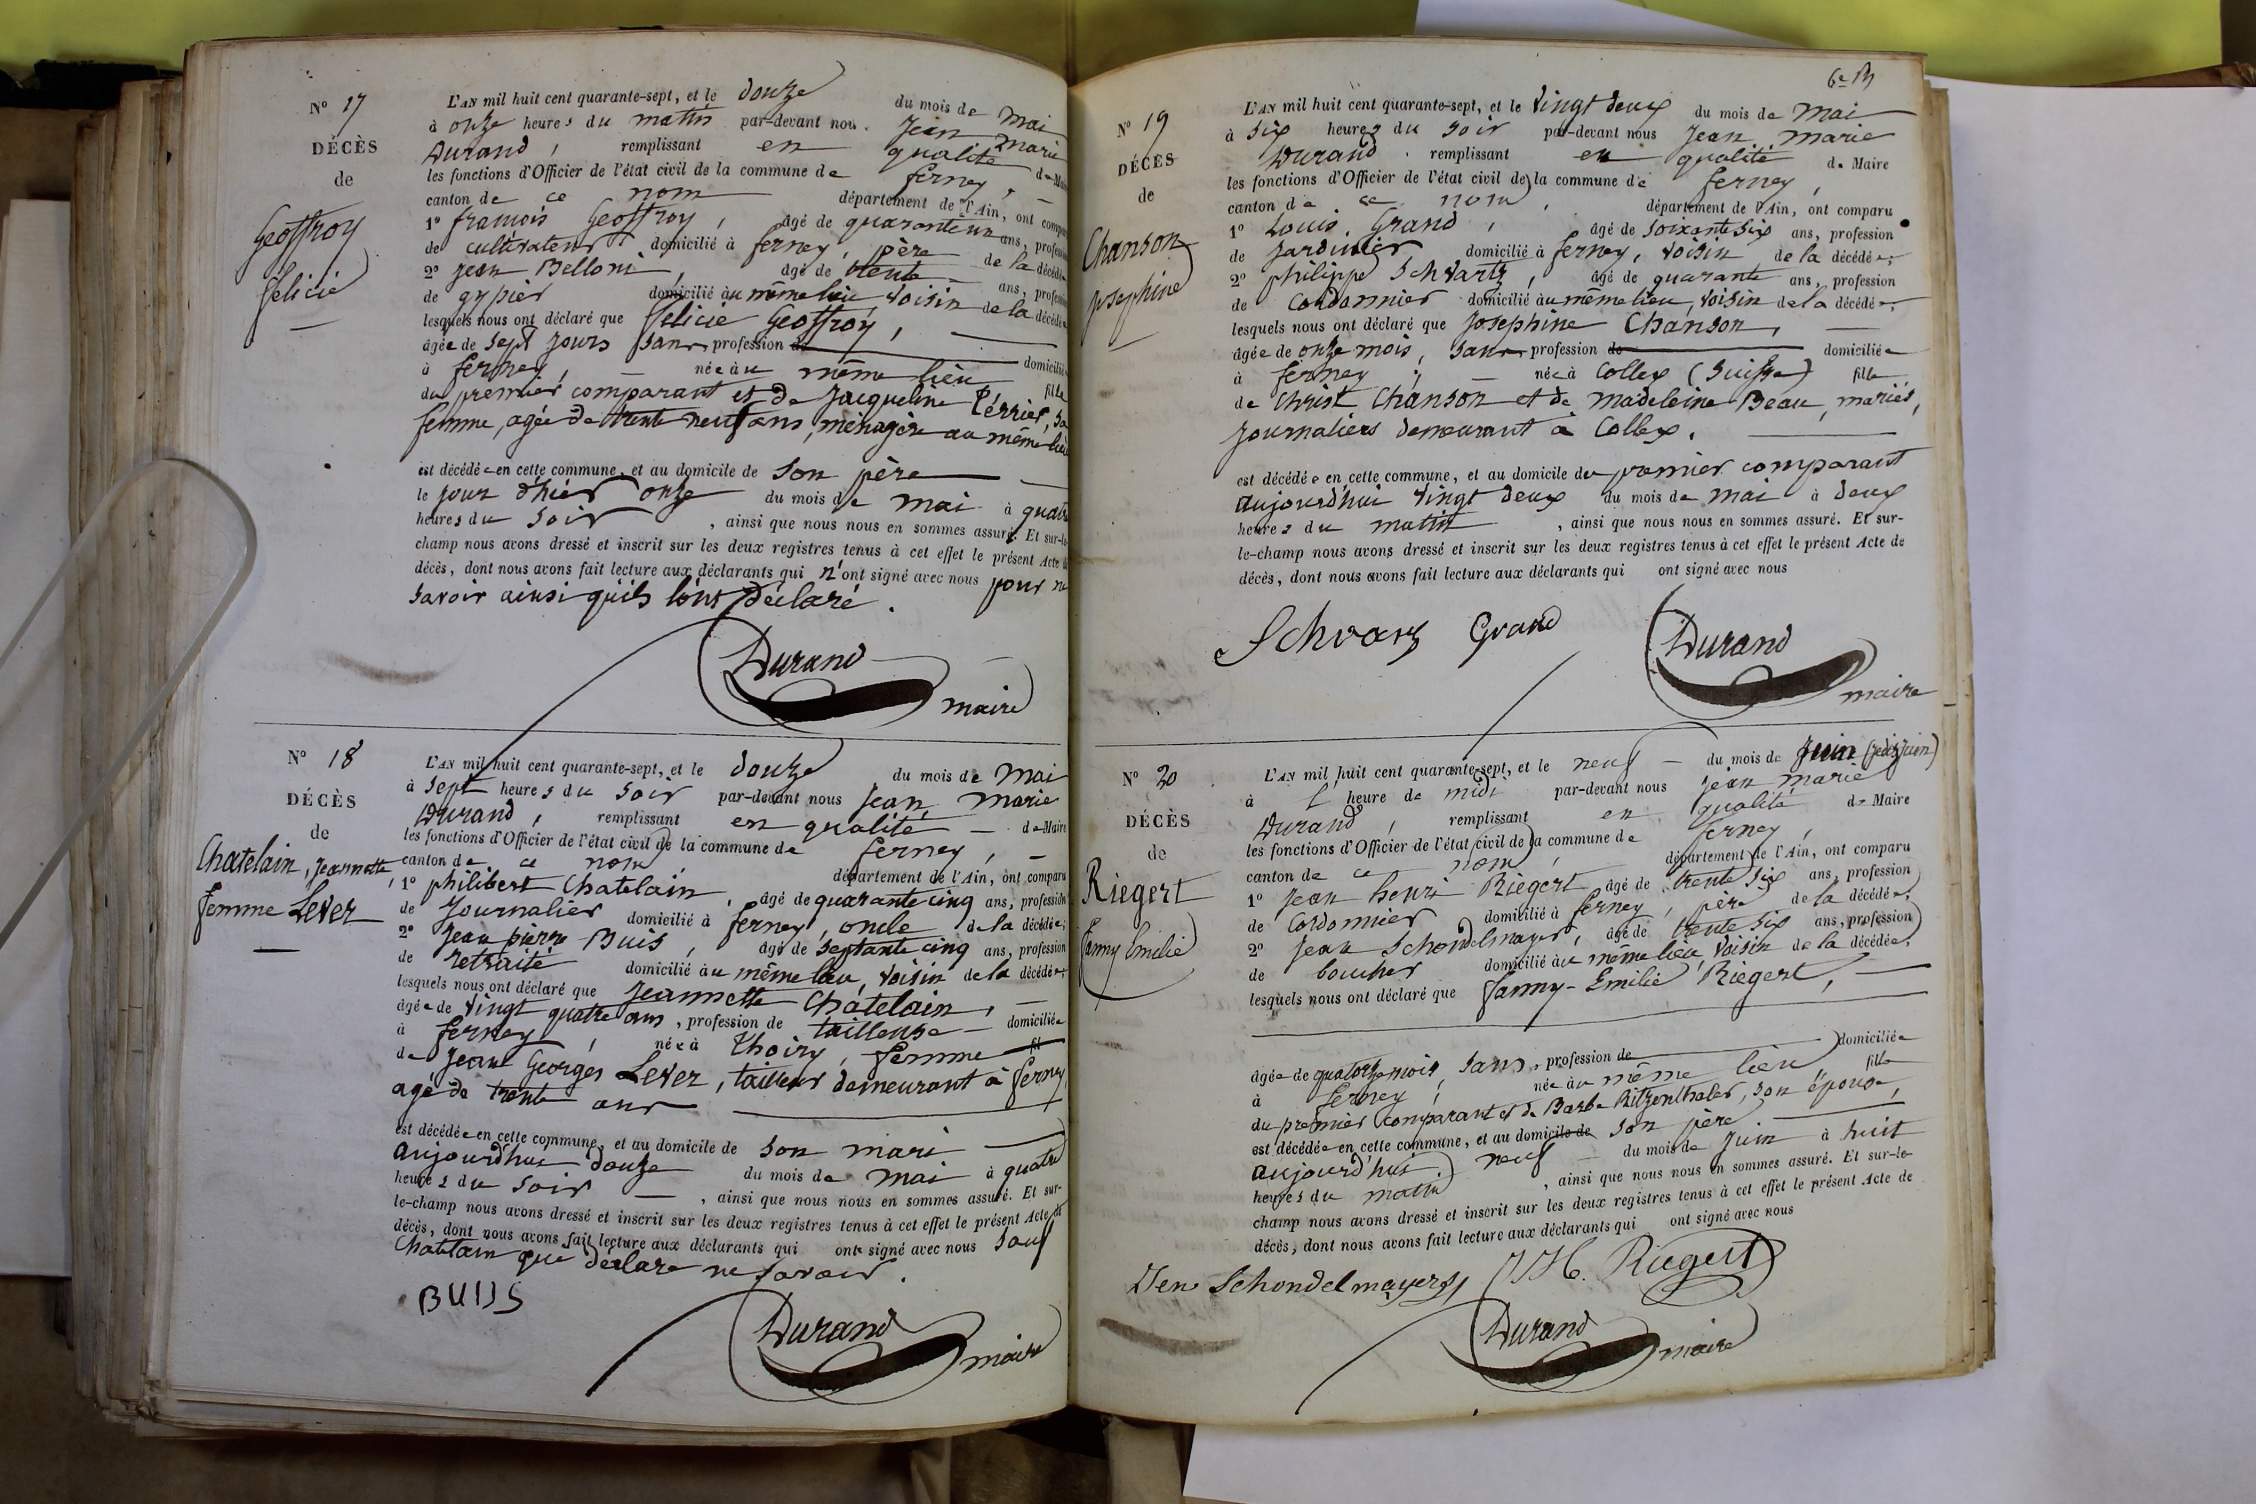 N° 17
DÉCÈS
de
Geoffroy
félicie
L'AN mil huit cent quarante-sept, et le douze du mois de mai
à onze heures du matin par-devant nous Jean marie
Durand, remplissant en qualité de Maire
les fonctions d'Officier de l'état civil de la commune de ferney,
canton de ce nom département de l'Ain, ont comparu
1° francois Geoffroy, âgé de quarante un ans, profession
de cultivateur domicilié à ferney, père de la décédée
2° jean Belloni, âgé de trente ans, profession
de gypier domicilié au même lieu, voisin de la décédée
lesquels nous ont déclaré que félicie Geoffroy,
âgée de sept jours sans profession de
à ferney, née au même lieu domiciliée
du premier comparant et de Jacqueline Perrier, sa fille
femme, agée de trente neuf ans, ménagère au même lieu
est décédée en cette commune, et au domicile de son père
le jour d'hier onze du mois de mai à quatre
heures du soir, ainsi que nous nous en sommes assuré. Et sur-le-
champ nous avons dressé et inscrit sur les deux registres tenus à cet effet le présent Acte de
décès, dont nous avons fait lecture aux déclarants qui n'ont signé avec nous pour ne
savoir ainsi qu'ils l'ont déclaré.
Durand
maire
N° 18
DÉCÈS
de
Chatelain, jeannette
femme Lever
L'AN mil huit cent quarante-sept, et le douze du mois de mai
à sept heures du soir par-devant nous Jean marie
Durand, remplissant en qualité de Maire
les fonctions d'Officier de l'état civil de la commune de ferney,
canton de ce nom département de l'Ain, ont comparu
1° philibert Chatelain, âgé de quarante cinq ans, profession
de journalier domicilié à ferney, oncle de la décédée;
2° Jean pierre Buis, âgé de septante cinq ans, profession
de retraité domicilié au même lieu, voisin de la décédée;
lesquels nous ont déclaré que jeannette Chatelain,
âgée de vingt quatre ans, profession de tailleuse domiciliée
à ferney, née à Thoiry, femme fil
de Jean Georges Lever, tailleur demeurant à ferney
agé de trente ans
est décédée en cette commune, et au domicile de son mari
aujourd'hui douze du mois de mai à quatre
heures du soir, ainsi que nous nous en sommes assuré. Et sur-
le-champ nous avons dressé et inscrit sur les deux registres tenus à cet effet le présent Acte de
décès, dont nous avons fait lecture aux déclarants qui ont signé avec nous sauf
Chatelain que déclare ne savoir.
BUIS
Durand
maire
N° 19
DÉCÈS
de
Chanson
Josephine
L'AN mil huit cent quarante-sept, et le vingt deux du mois de mai
à six heures du soir par-devant nous Jean marie
Durand, remplissant en qualité de Maire
les fonctions d'Officier de l'état civil de la commune de ferney,
canton de ce nom, département de l'Ain, ont comparu
1° Louis Grand, âgé de soixante six ans, profession
de jardinier domicilié à ferney, voisin de la décédée;
2° philippe Schvartz, âgé de quarante ans, profession
de cordonnier domicilié au même lieu, voisin de la décédée;
lesquels nous ont déclaré que Josephine Chanson,
âgée de onze mois, sans profession de domiciliée
à ferney, née à Collex (Suisse) fille
de Christ Chanson et de madeleine Beau, mariés,
journaliers demeurant à Collex.
est décédée en cette commune, et au domicile du premier comparant
aujourd'hui vingt deux du mois de mai à deux
heures du matin, ainsi que nous nous en sommes assuré. Et sur-
le-champ nous avons dressé et inscrit sur les deux registres tenus à cet effet le présent Acte de
décès, dont nous avons fait lecture aux déclarants qui ont signé avec nous
Schvarz Grand
Durand
maire
N° 20
DÉCÈS
de
Riegert
fanny Emilie
L'AN mil huit cent quarante-sept, et le neuf du mois de Juin (je dis juin)
à l'heure de midi par-devant nous jean marie
Durand, remplissant en qualité de Maire
les fonctions d'Officier de l'état civil de la commune de ferney,
canton de ce nom, département de l'Ain, ont comparu
1° Jean henri Riegert âgé de trente six ans, profession
de Cordonnier domicilié à ferney, père de la décédée;
2° Jean Schondelmayer, âgé de trente six ans, profession
de boucher domicilié au même lieu, voisin de la décédée,
lesquels nous ont déclaré que fanny-Emilie Riegert,
âgée de quatorze mois, sans, profession de domiciliée
à ferney, née au même lieu fille
du premier comparant et de Barbe Ritzenthaler, son épouse,
est décédée en cette commune, et au domicile de son père
aujourd'hui neuf du mois de juin à huit
heures du matin, ainsi que nous nous en sommes assuré. Et sur-le-
champ nous avons dressé et inscrit sur les deux registres tenus à cet effet le présent Acte de
décès, dont nous avons fait lecture aux déclarants qui ont signé avec nous
Schondelmayer J H. Riegert
Durand
maire